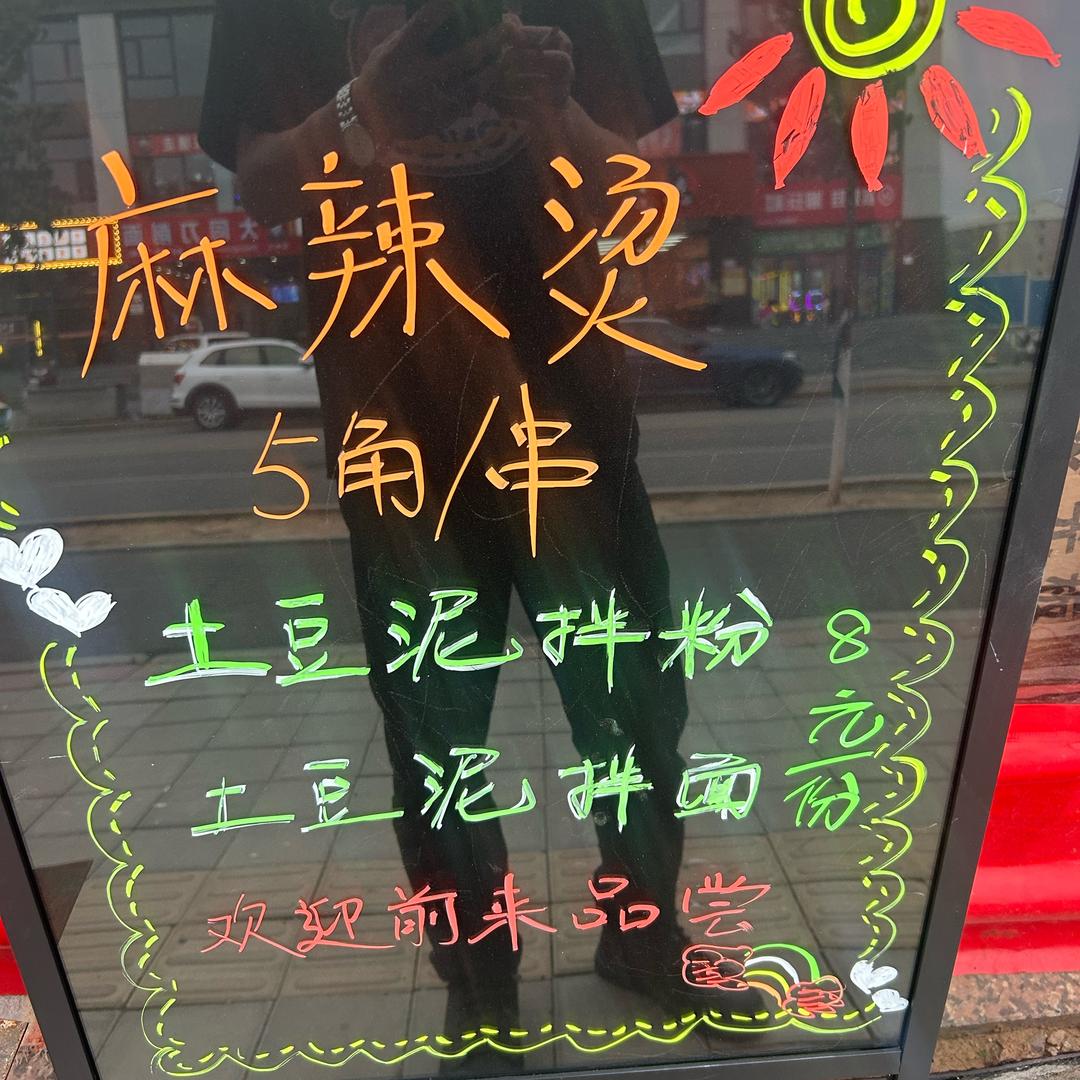 麻辣烫
5角/串
土豆泥拌粉 8
元/份
土豆泥拌面
欢迎前来品尝